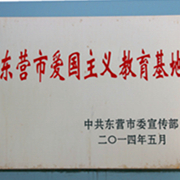 东营市爱国主义教育基地
中共东营市委宣传部
二〇一四年五月